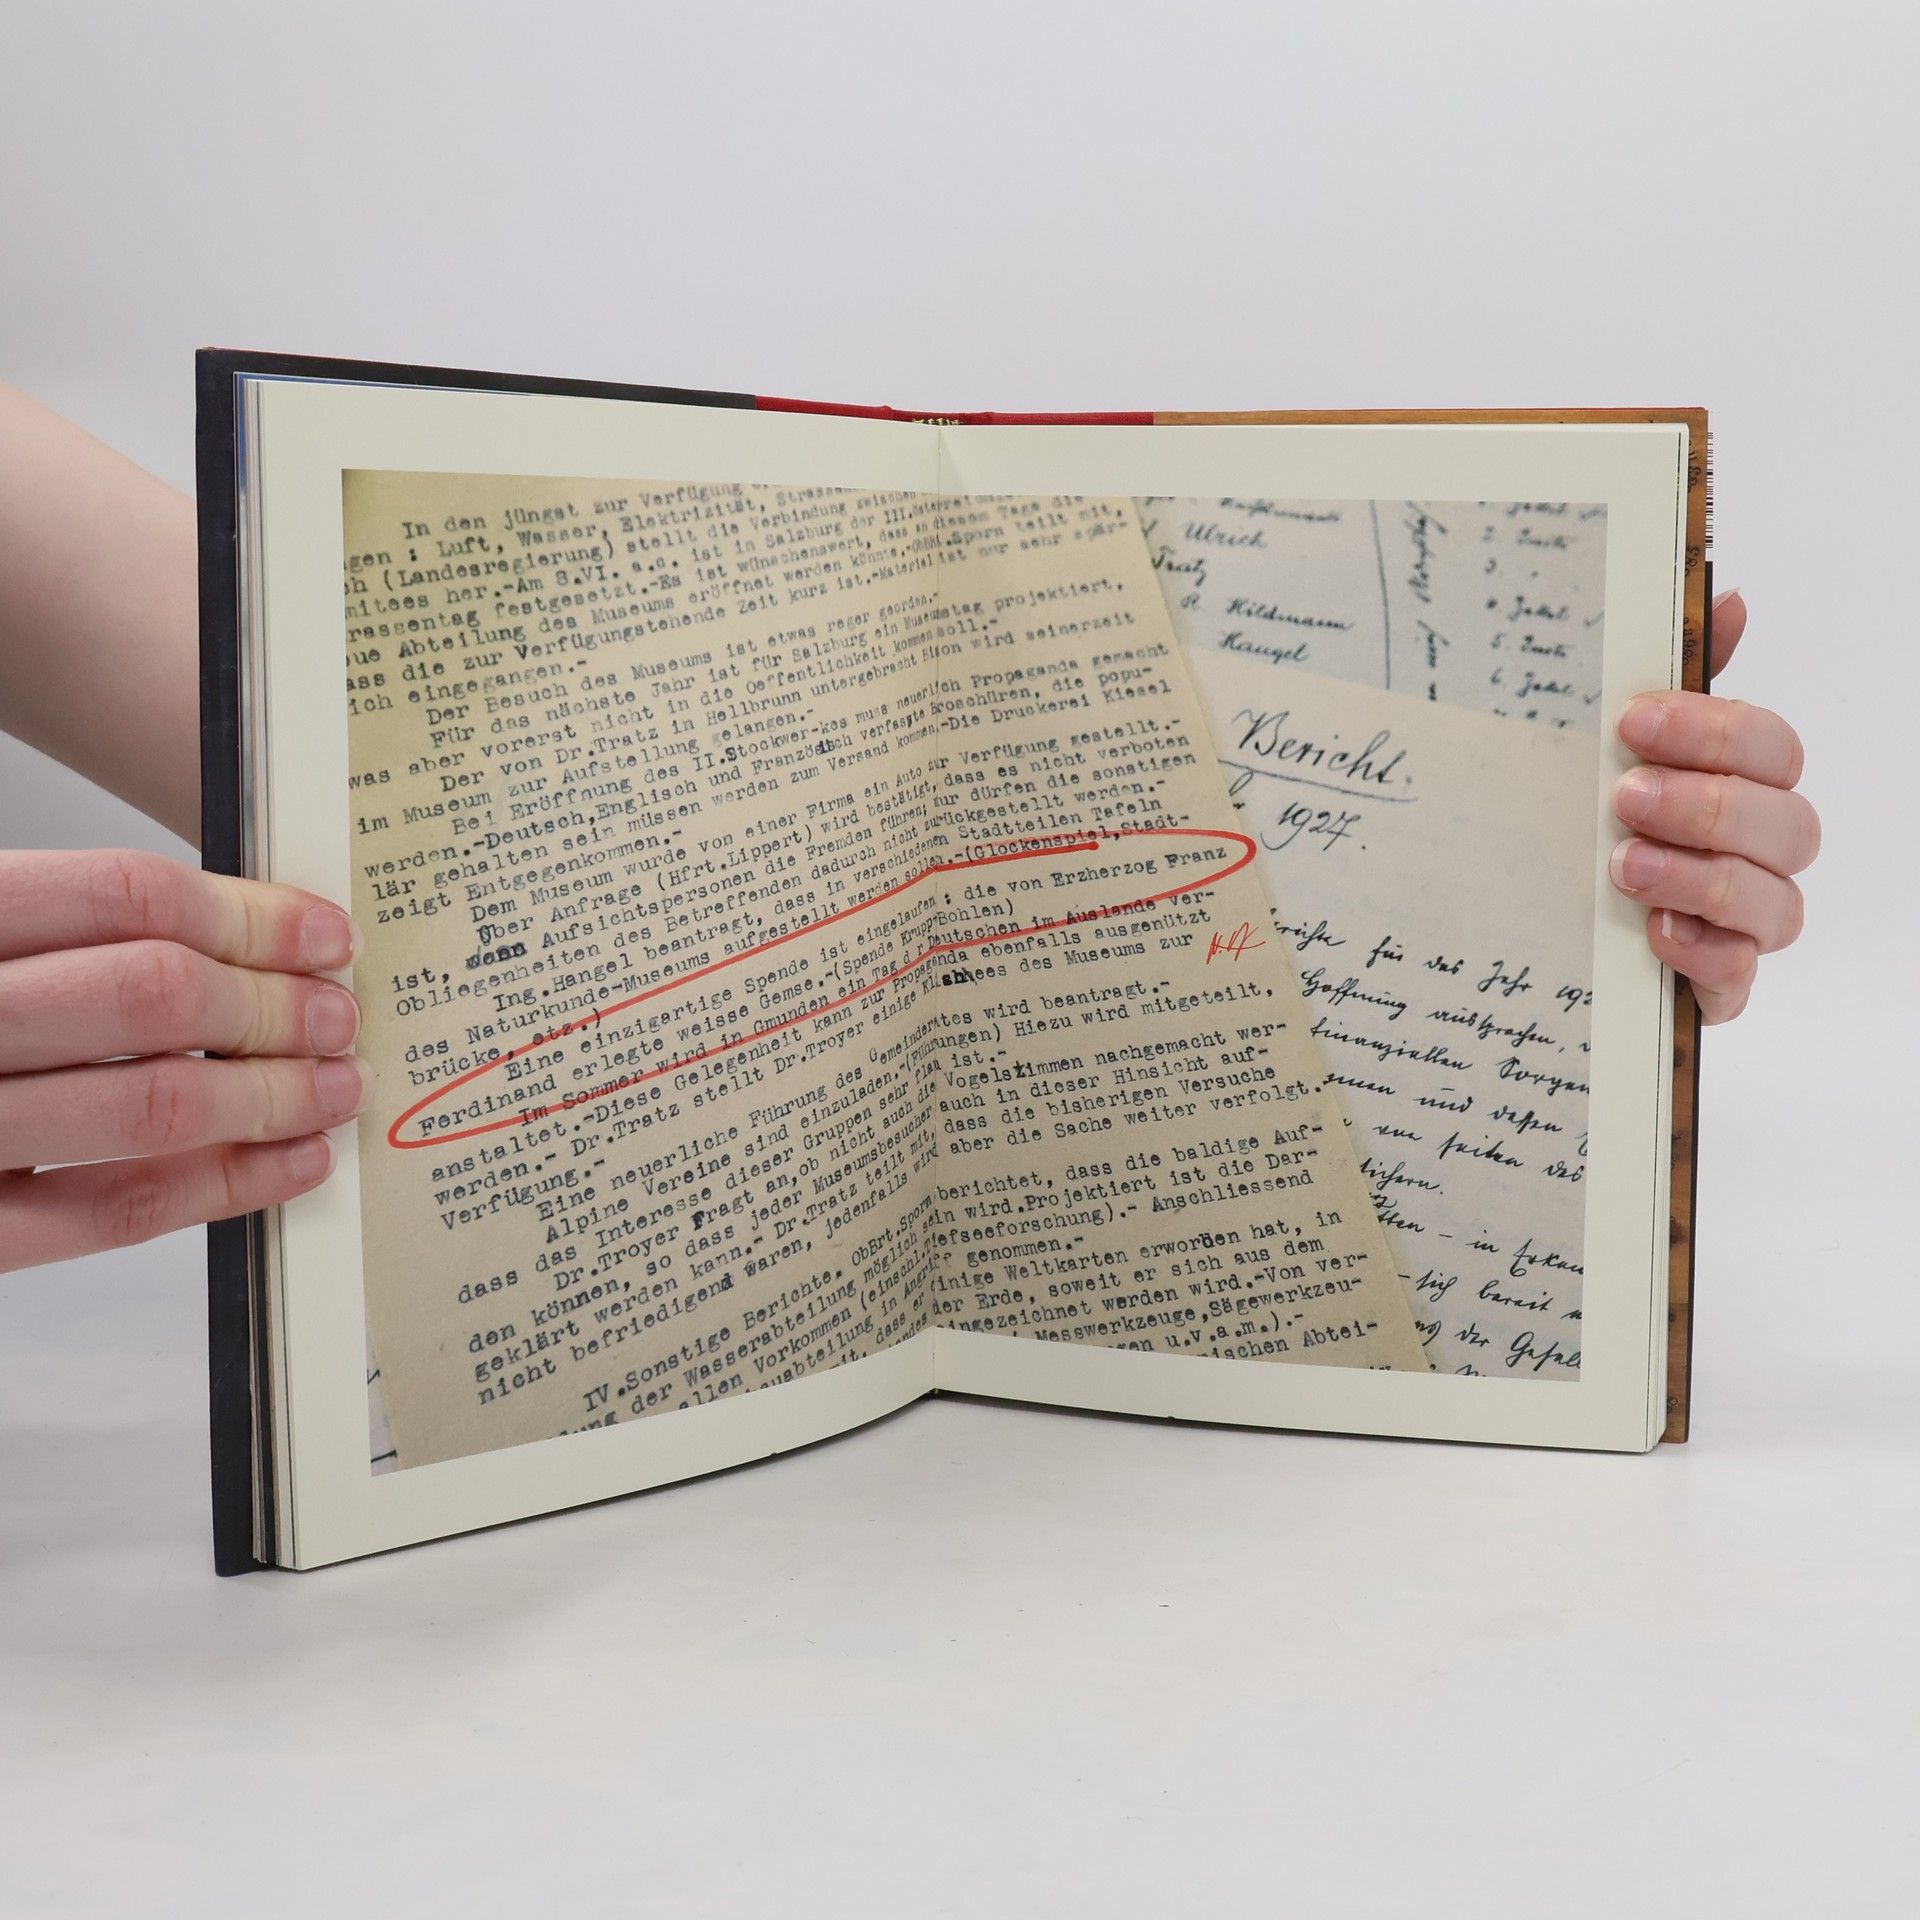 In den jüngst zur Verfügung
gen : Luft, Wasser, Elektrizität, Strassen
ch (Landesregierung) stellt die Verbindung zwischen
mitees her.-Am 8.VI. a.c. ist in Salzburg der III.österrei
rassentag festgesetzt.-Es ist wünschenswert, dass an diesem Tage die
eue Abteilung des Museums eröffnet werden könnte.-ObBRt.Sporn teilt mit,
ass die zur Verfügungstehende Zeit kurz ist.-Material ist nur sehr spär-
ich eingegangen.-
Der Besuch des Museums ist etwas reger georden.-
Für das nächste Jahr ist für Salzburg ein Museumstag projektiert,
was aber vorerst nicht in die Oeffentlichkeit kommen soll.-
Der von Dr.Tratz in Hellbrunn untergebracht Bison wird seinerzeit
im Museum zur Aufstellung gelangen.-
Bei Eröffnung des II.Stockwer-kes muss neuerlich Propaganda gemacht
werden.-Deutsch,Englisch und Französisch verfasste Broschüren, die popu-
lär gehalten sein müssen werden zum Versand kommen.-Die Druckerei Kiesel
zeigt Entgegenkommen.-
Dem Museum wurde von einer Firma ein Auto zur Verfügung gestellt.-
Über Anfrage (Hfrt.Lippert) wird bestätigt, dass es nicht verboten
ist, Aufsichtspersonen die Fremden führen; nur dürfen die sonstigen
Obliegenheiten des Betreffenden dadurch nicht zurückgestellt werden.-
Ing.Hangel beantragt, dass in verschiedenen Stadtteilen Tafeln
des Naturkunde-Museums aufgestellt werden sollen.-(Glockenspiel,Stadt-
brücke, etz.)
Eine einzigartige Spende ist eingelaufen : die von Erzherzog Franz
Ferdinand erlegte weisse Gemse.-(Spende Krupp Bohlen)
Im Sommer wird in Gmunden ein Tag d r Deutschen im Auslande ver-
anstaltet.-Diese Gelegenheit kann zur Propaganda ebenfalls ausgenützt
werden.- Dr.Tratz stellt Dr.Troyer einige Klischees des Museums zur
Verfügung.-
Eine neuerliche Führung des Gemeinderates wird beantragt.-
Alpine Vereine sind einzuladen.-(Führungen) Hiezu wird mitgeteilt,
dass das Interesse dieser Gruppen sehr flau ist.-
Dr.Troyer fragt an,ob nicht auch die Vogelstimmen nachgemacht wer-
den können, so dass jeder Museumsbesucher auch in dieser Hinsicht auf-
geklärt werden kann.- Dr.Tratz teilt mit, dass die bisherigen Versuche
nicht befriedigend waren, jedenfalls wird aber die Sache weiter verfolgt.
IV.Sonstige Berichte. ObBrt.Sporn berichtet, dass die baldige Auf-
lung der Wasserabteilung möglich sein wird.Projektiert ist die Dar-
allen Vorkommen (einschl.Tiefseeforschung).- Anschliessend
auabteilung in Angriff genommen.-
mit, dass er einige Weltkarten erworben hat, in
der Erde, soweit er sich aus dem
eingezeichnet werden wird.-Von ver-
Messwerkzeuge,Sägewerkzeu-
gen u.v.a.m.).-
ischen Abtei-
Ulrich
Tratz
R. Hildmann
Hangel
2.
3.
4.
5.
6.
Bericht.
1927.
für das Jahr 192
Hoffnung aussprachen,
finanziellen Sorgen
und dessen
von seiten des
sichern.
– in Erken
sich bereit
der Gefall